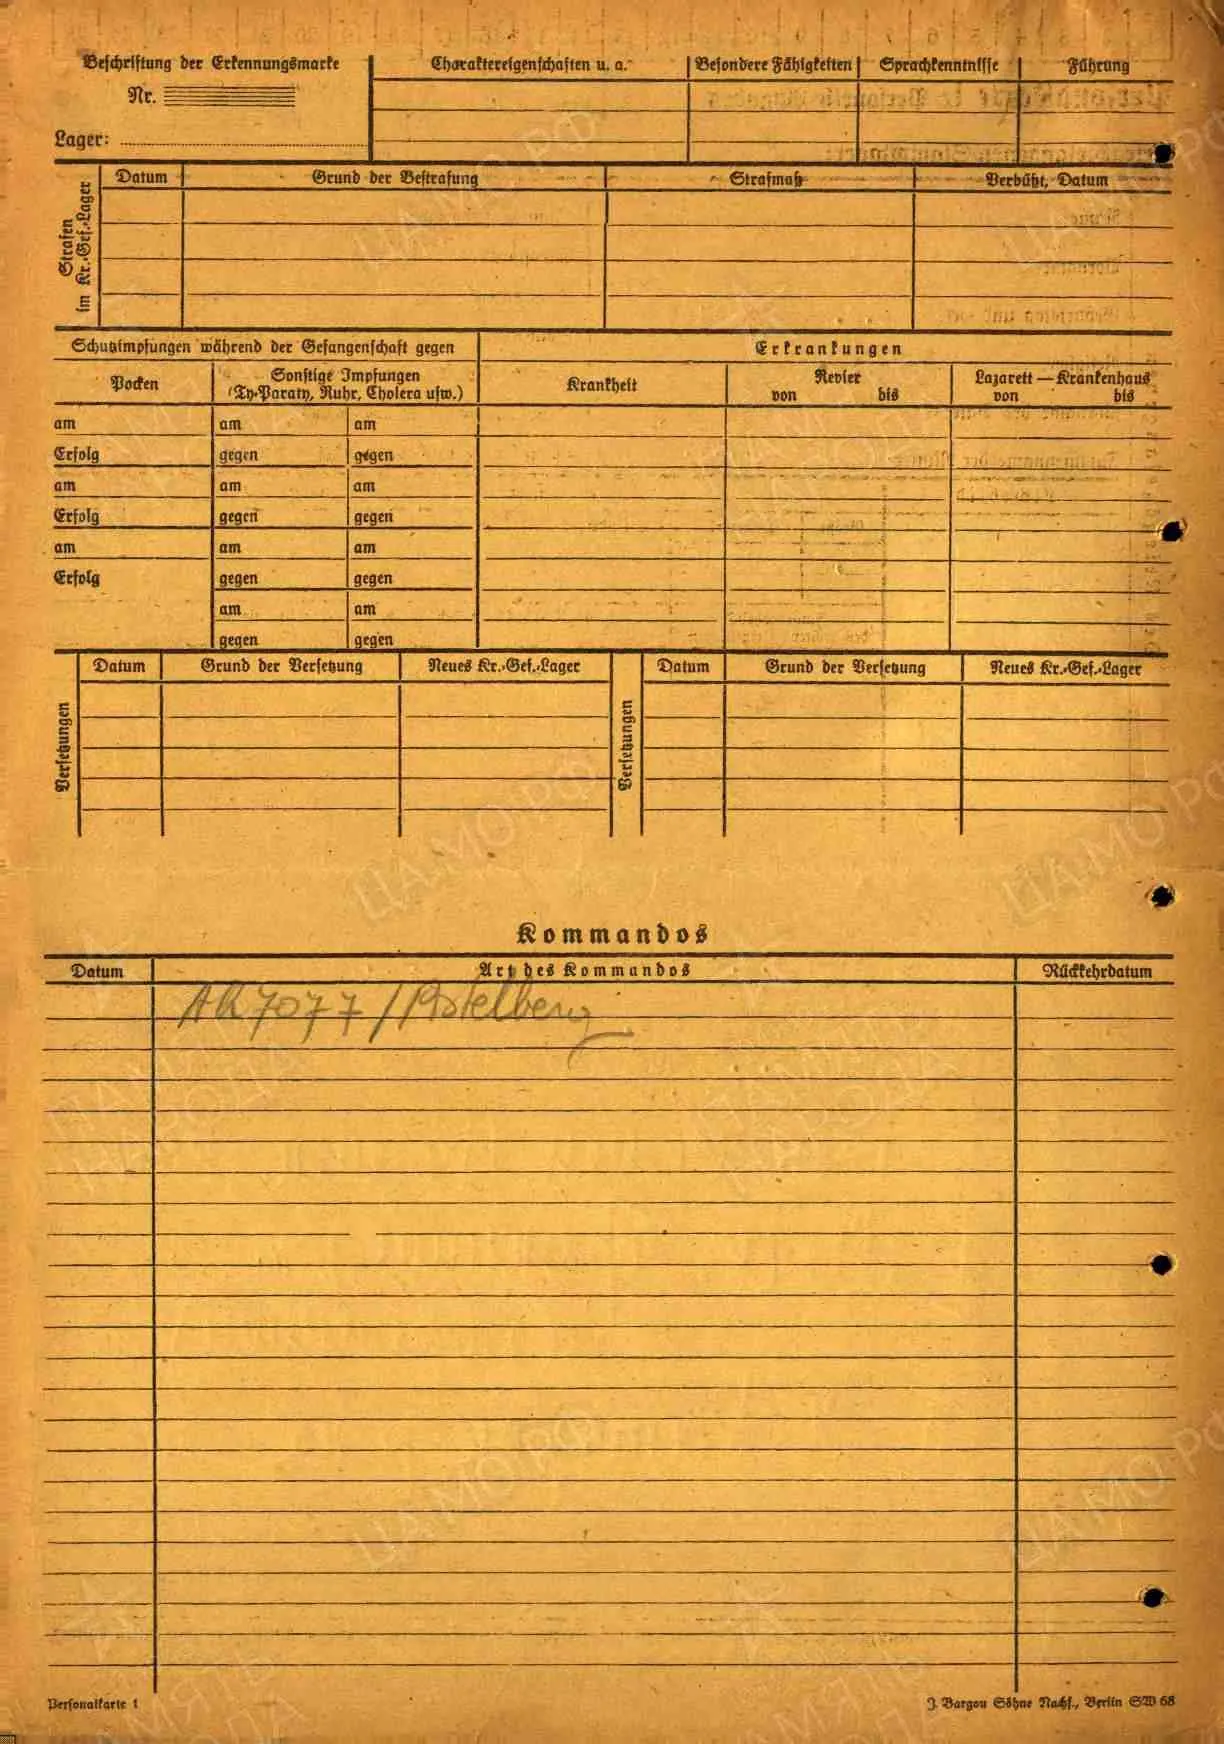 Beschriftung der Erkennungsmarke
Nr.
Lager:
Charaktereigenschaften u. a.
Besondere Fähigkeiten
Sprachkenntnisse
Führung
Strafen
im Kr.-Gef.-Lager
Datum
Grund der Bestrafung
Strafmaß
Verbüßt, Datum
Schutzimpfungen während der Gefangenschaft gegen
Pocken
Sonstige Impfungen
(Ty-Paraty, Ruhr, Cholera usw.)
Erkrankungen
Krankheit
Revier
von bis
Lazarett — Krankenhaus
von bis
am am am
Erfolg gegen gegen
am am am
Erfolg gegen gegen
am am am
Erfolg gegen gegen
am am
gegen gegen
Versetzungen
Datum
Grund der Versetzung
Neues Kr.-Gef.-Lager
Versetzungen
Datum
Grund der Versetzung
Neues Kr.-Gef.-Lager
Kommandos
Datum
Art des Kommandos
Rückkehrdatum
7077 /
Personalkarte 1
J. Bargou Söhne Nachf., Berlin SW 68
ЦАМО РФ
ПАМЯТЬ
НАРОДА